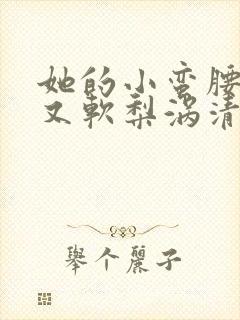 她的小蛮腰
又軟梨涡清
举个麗子